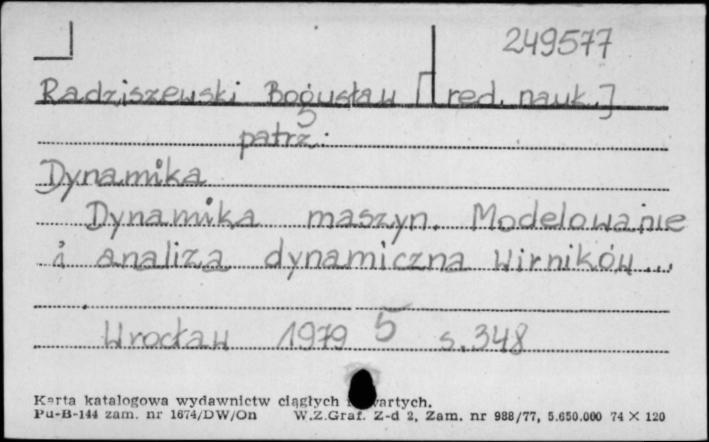 249577
Radziszewski Bogusław [red. nauk.]
patrz:
Dynamika
Dynamika maszyn. Modelowanie
i analiza dynamiczna wirników...
Wrocław 1979 5 s. 348
Karta katalogowa wydawnictw ciągłych i zwartych.
Pu-B-144 zam. nr 1674/DW/On W.Z.Graf. Z-d 2, Zam. nr 988/77, 5.650.000 74 X 120